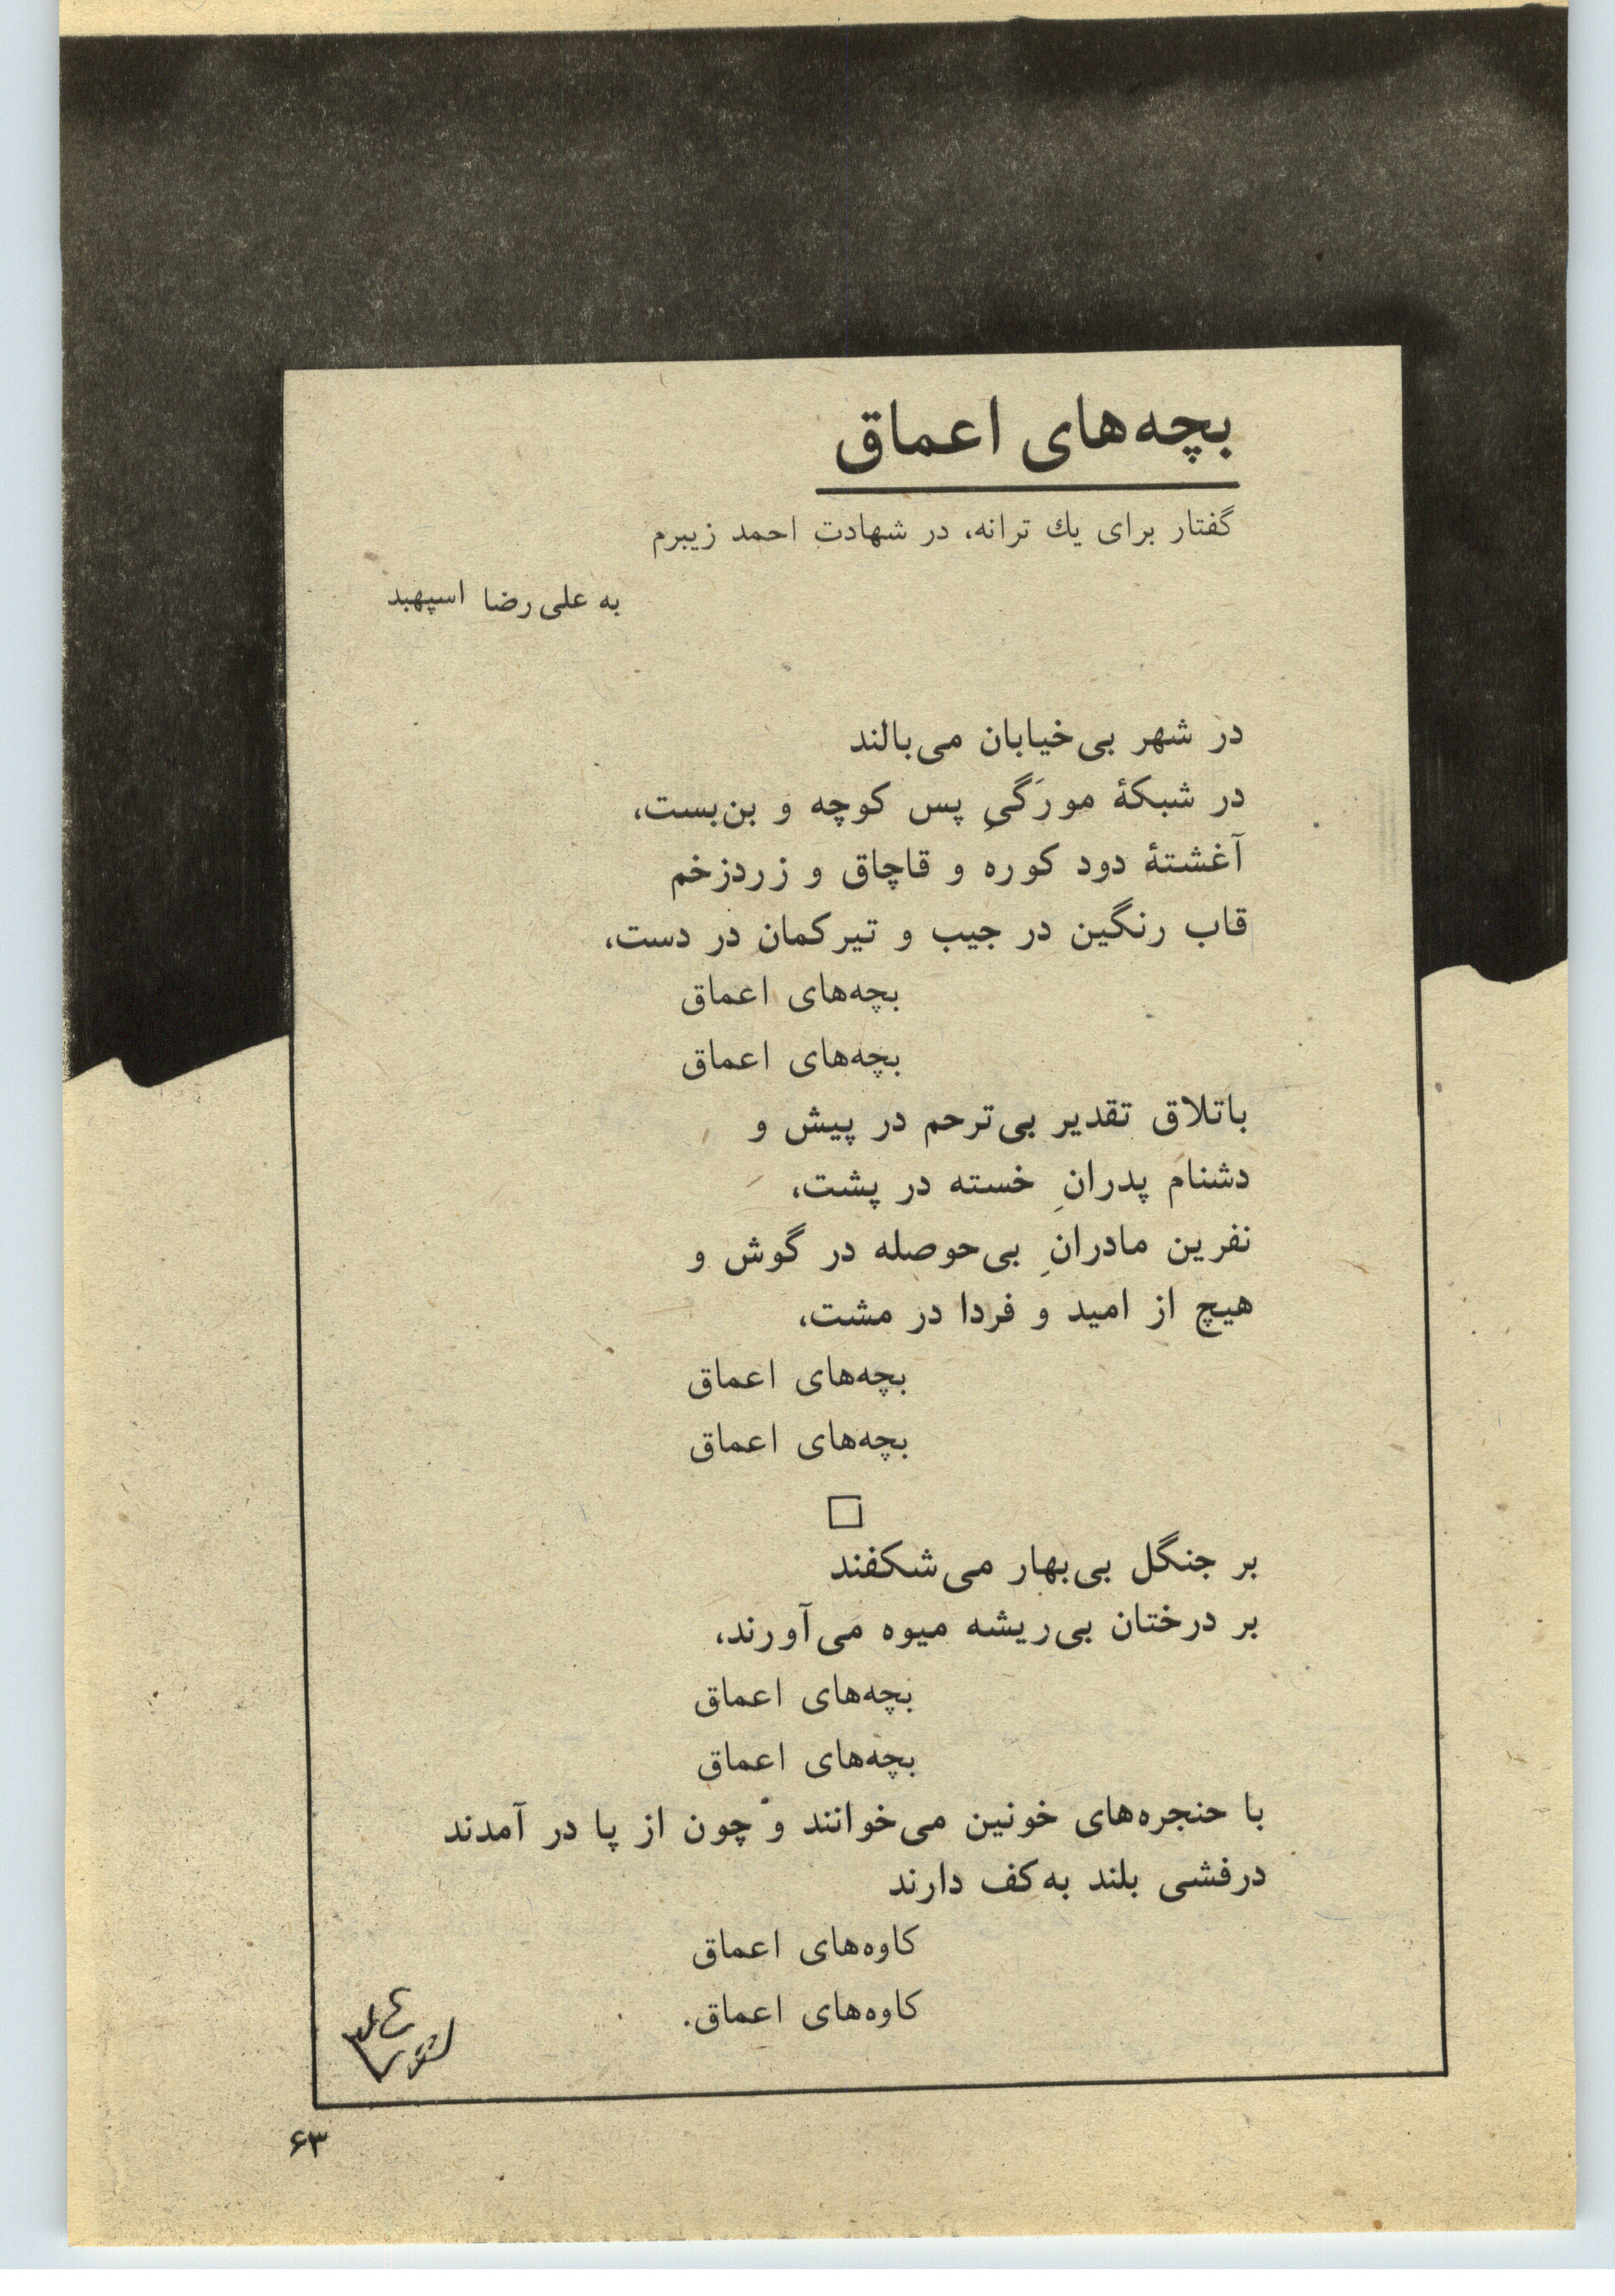 بچه‌های اعماق
گفتار برای یك ترانه، در شهادت احمد زیبرم
به علی‌رضا اسپهبد
در شهر بی‌خیابان می‌بالند
در شبکهٔ مورَگیِ پس کوچه و بن‌بست،
آغشتهٔ دود کوره و قاچاق و زردزخم
قاب رنگین در جیب و تیرکمان در دست،
بچه‌های اعماق
بچه‌های اعماق
باتلاق تقدیر بی‌ترحم در پیش و
دشنام پدرانِ خسته در پشت،
نفرین مادرانِ بی‌حوصله در گوش و
هیچ از امید و فردا در مشت،
بچه‌های اعماق
بچه‌های اعماق
بر جنگل بی‌بهار می‌شکفند
بر درختان بی‌ریشه میوه می‌آورند،
بچه‌های اعماق
بچه‌های اعماق
با حنجره‌های خونین می‌خوانند و چون از پا در آمدند
درفشی بلند به‌کف دارند
کاوه‌های اعماق
کاوه‌های اعماق.
۶۳